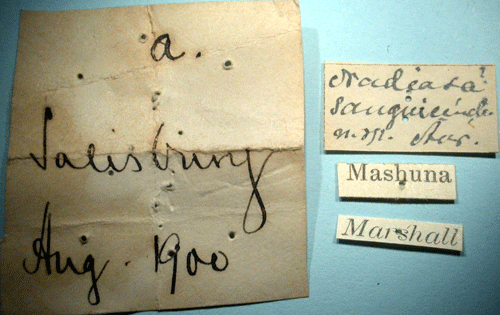 a.
Salisbury
Aug. 1900
Nadiasa?
sanguicincta
n. sp. Aur.
Mashuna
Marshall